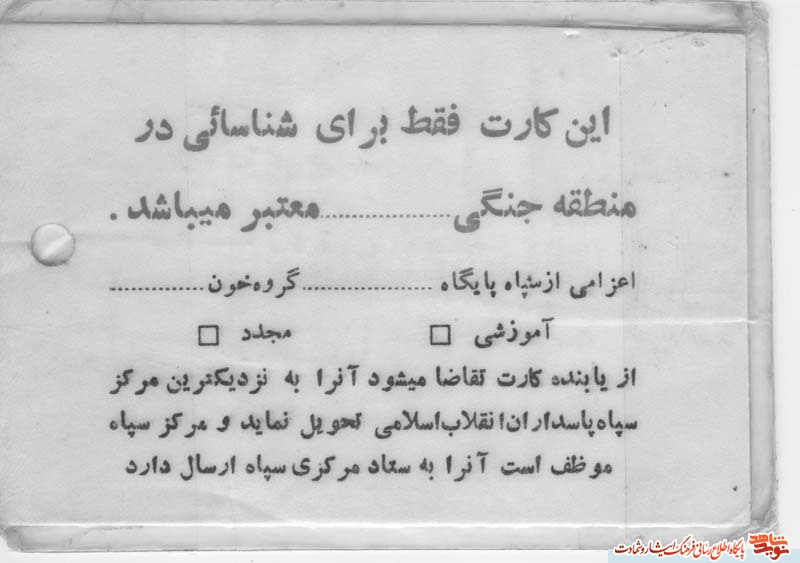 این کارت فقط برای شناسائی در
منطقه جنگی....................معتبر میباشد .
اعزامی از سپاه پایگاه ....................گروه خون...............
آموزشی □ مجدد □
از یابنده کارت تقاضا میشود آنرا به نزدیکترین مرکز
سپاه پاسداران انقلاب اسلامی تحویل نماید و مرکز سپاه
موظف است آنرا به ستاد مرکزی سپاه ارسال دارد
نوید شاهد پایگاه اطلاع رسانی فرهنگ ایثار و شهادت